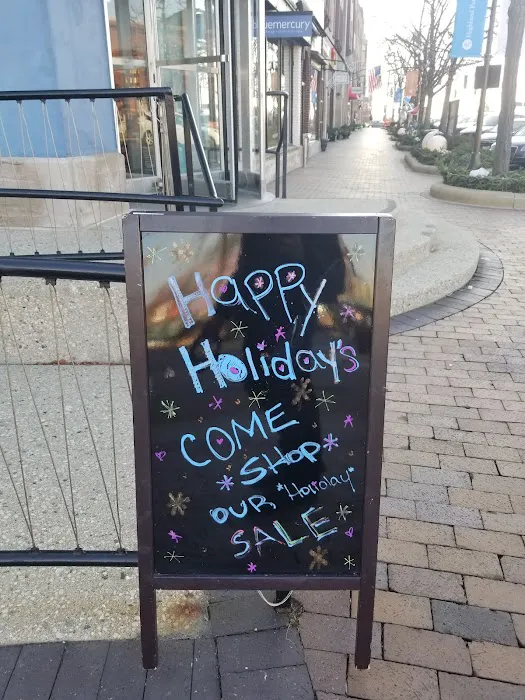 uemercury
Happy
Holiday's
COME
SHOP
OUR "Holiday"
SALE